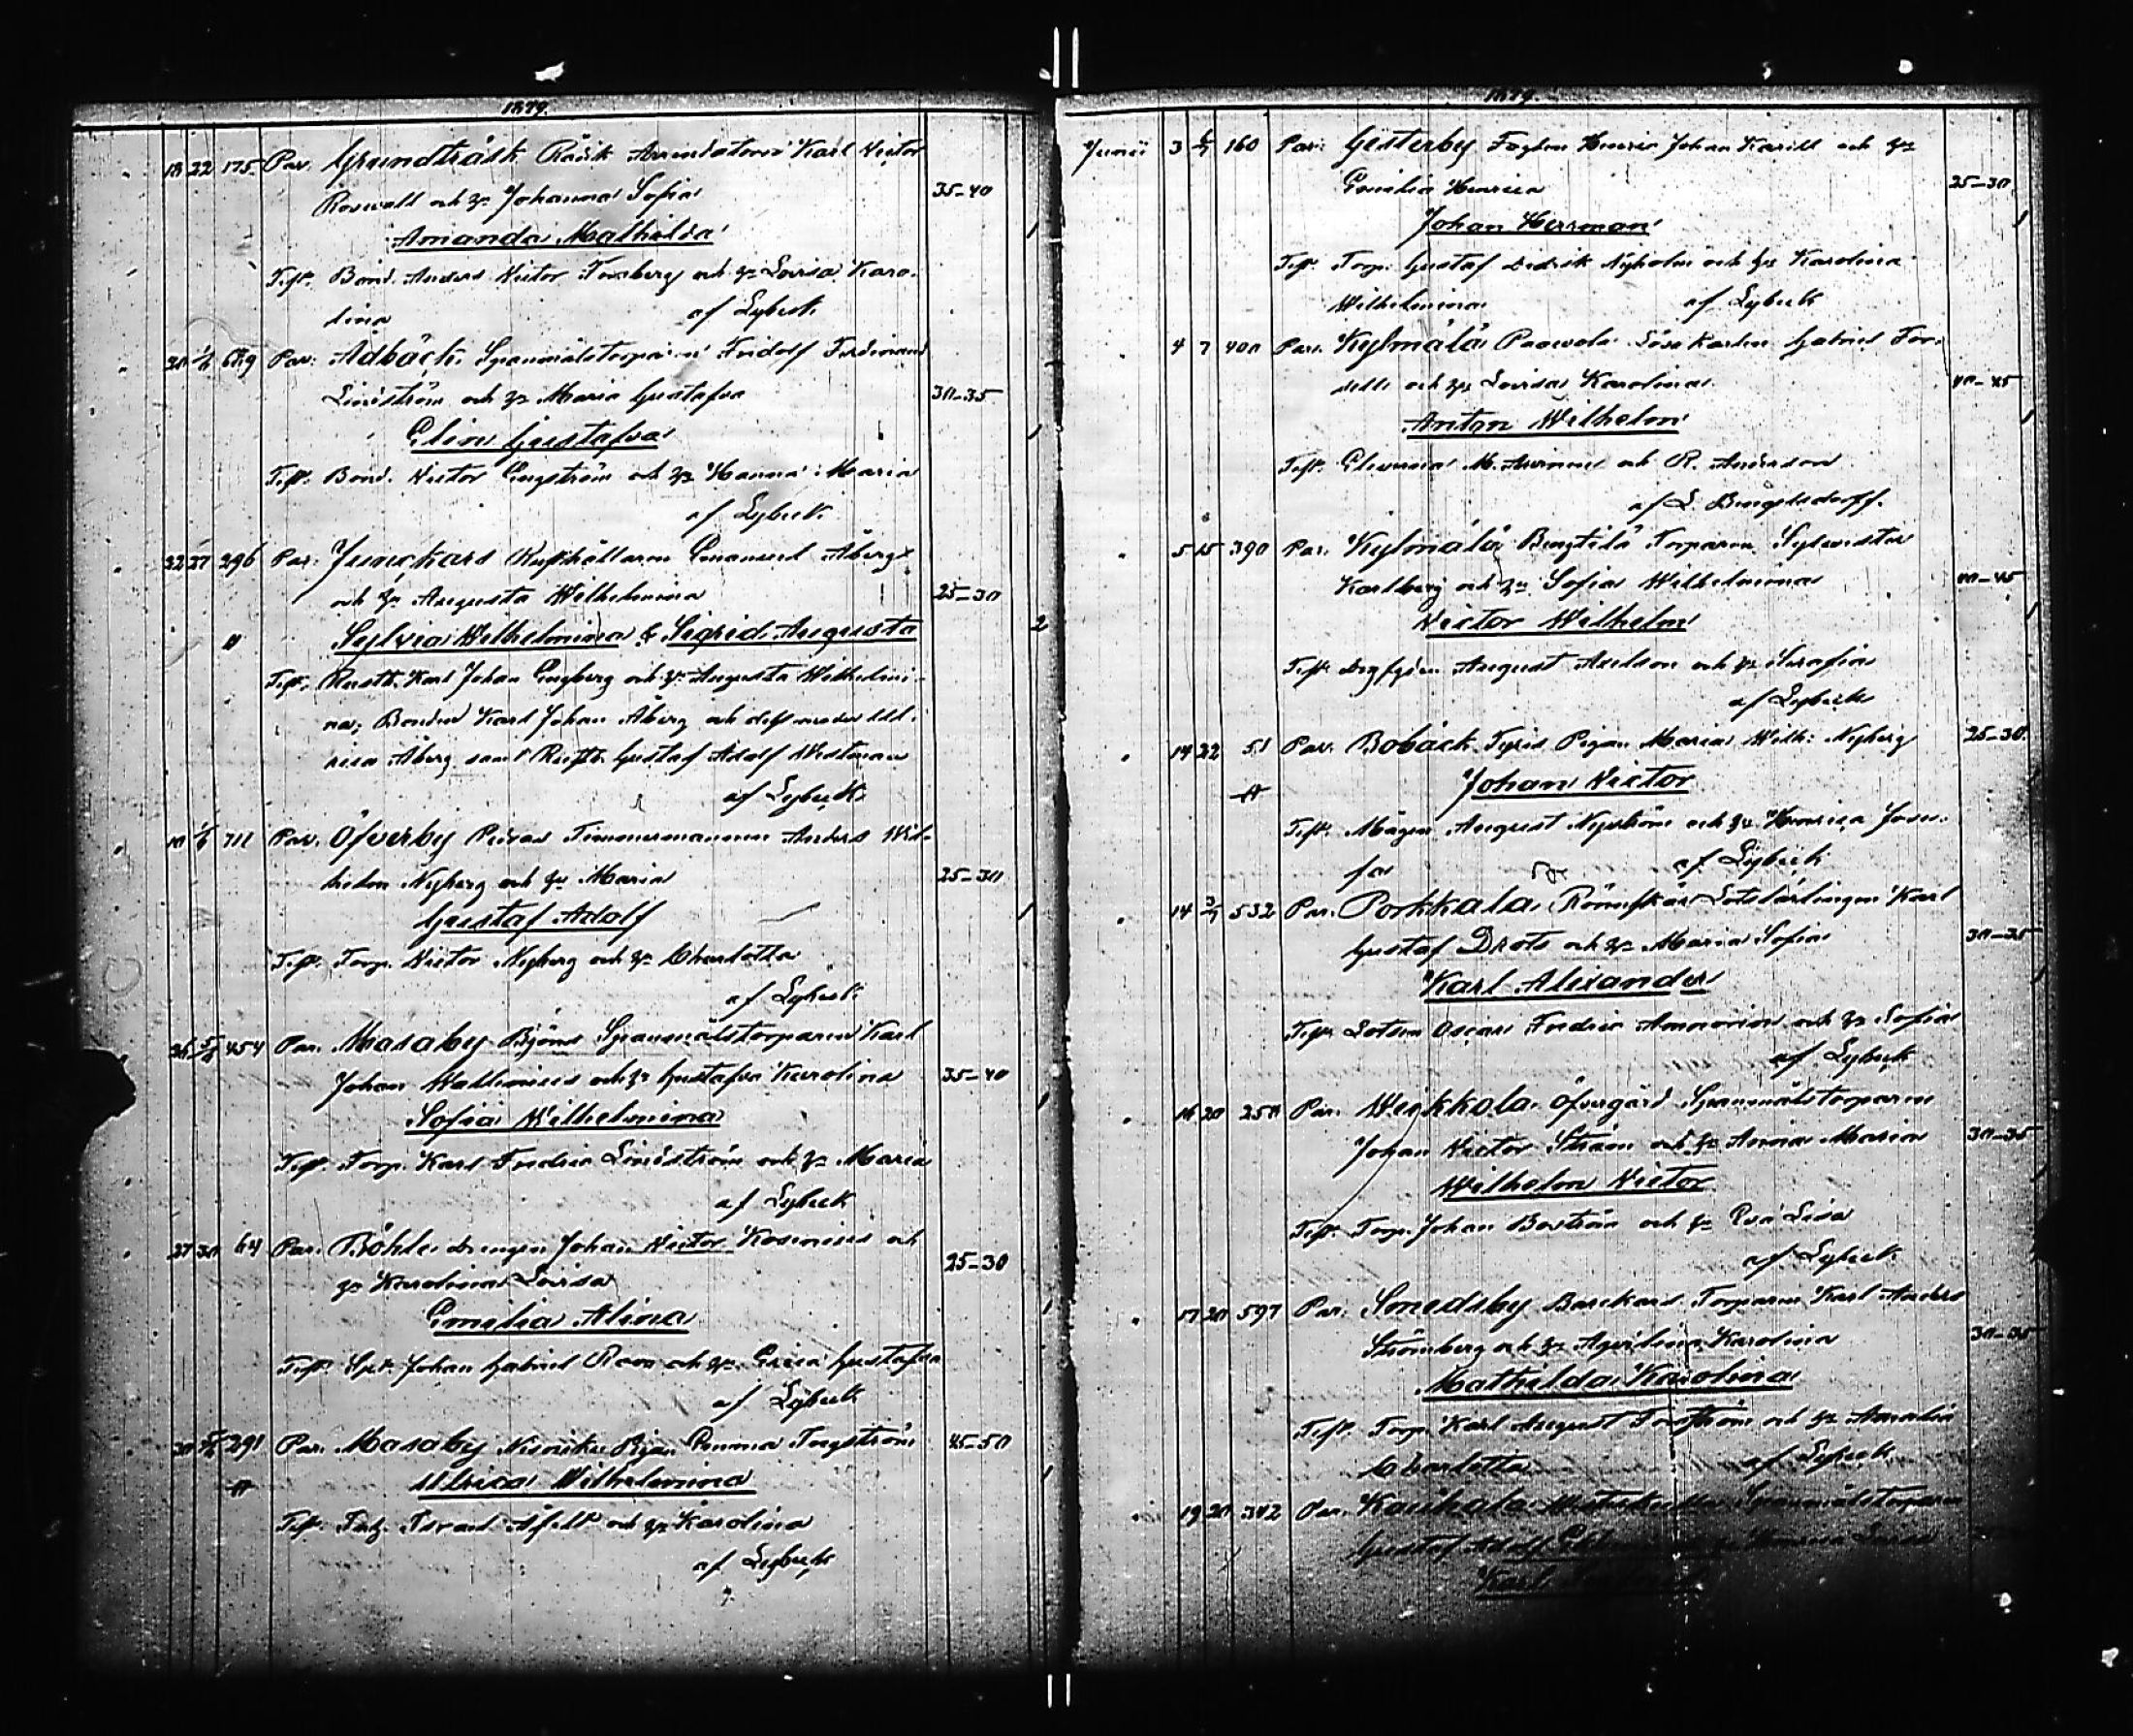 1879.
18 22 175 Par. Grundträsk Rådik Arrendatorn Karl Victor
Roswall och h. Johanna Sofia 35-40
Amanda Mathilda 1
Test. Bond. Anders Victor Forsberg och h. Lovisa Karo-
lina af Lybeck
669 Par: Ådbäck, Spannmålstorparen Fridolf Ferdinand
Lindström och h. Maria Gustafva 30-35
Elin Gustafva 1
Test. Bond. Victor Engström och h. Hanna Maria
af Lybeck
22 27 296 Par: Junckars Rusthållaren Emanuel Åberg
och h. Augusta Wilhelmina 25-30
Sylvia Wilhelmina & Sigrid Augusta 2
Test. Rusth. Karl Johan Engberg och h. Augusta Wilhelmi-
na; Bonden Karl Johan Åberg och dess moder Ul-
rica Åberg samt Rusth. Gustaf Adolf Westman
af Lybeck
711 Par. Öfverby Timmermannen Anders Wil-
helm Nyberg och h. Maria 25-30
Gustaf Adolf 1
Test. Torp. Victor Nyberg och h. Charlotta
af Lybeck
26 454 Par. Masaby Björns Spannmålstorparen Karl
Johan Wallenius och h. Gustafva Karolina 35-40
Sofia Wilhelmina 1
Test. Torp. Karl Fredric Lindström och h. Maria
af Lybeck
27 30 64 Par. Böhle drengen Johan Victor och
h. Karolina Lovisa 25-30
Emilia Alina 1
Test. Johan Gabriel Roos och h. Erica Gustafva
af Lybeck
30 291 Par. Masaby Pigan Emma Engström 45-50
Ulrica Wilhelmina 1
Test. och h. Karolina
af Lybeck
1879.
Junii 3 160 Par: Gesterby Johan och h.
Emilia Henrica 25-30
Johan Herrman 1
Test. Torp. Gustaf Didrik Nyholm och h. Karolina
Wilhelmina af Lybeck
4 7 400 Par. Kylmälä Paavola Gabriel For-
sell och h. Lovisa Karolina 40-45
Anton Wilhelm 1
Test. M. och R. Andersson
af L. Bengelsdorff.
5 15 390 Par. Kylmälä Bengtilä Torparen Sylvester
Karlberg och h. Sofia Wilhelmina 40-45
Victor Wilhelm 1
Test. August Axelson och h. Serafia
af Lybeck
14 22 51 Par. Bobäck Pigan Maria Wilh: Nyberg 25-30
Johan Victor
Test. Mågen August Nyström och h. Henrica Jose-
fa af Lybeck
14 532 Par. Porkkala Rönnskär Lotslärlingen Karl
Gustaf Drots och h. Maria Sofia 30-35
Karl Alexander 1
Test. Lotsen Oscar Fredric och h. Sofia
af Lybeck
16 20 250 Par. Weikkola Öfvergård Spannmålstorparen
Johan Victor Ström och h. Anna Maria 30-35
Wilhelm Victor 1
Test. Torp. Johan Boström och h. Eva Lisa
af Lybeck
17 20 597 Par. Smedsby Barckars Torparen Karl Anders
Strömberg och h. Karolina 30-35
Mathilda Karolina 1
Test. Torp. Karl August Forsström och h. Amalia
Charlotta af Lybeck
19 20 342 Par. Spannmålstorparen
Gustaf Adolf Henrica Lovisa
Karl